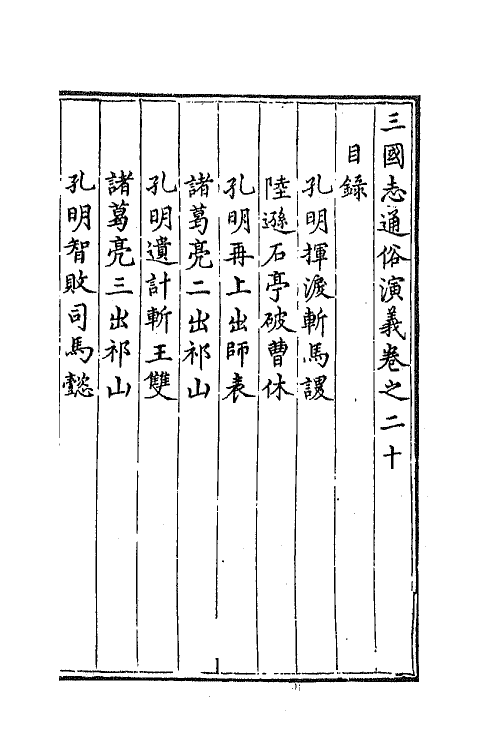 三國志通俗演義卷之二十
目錄
孔明揮淚斬馬謖
陸遜石亭破曹休
孔明再上出師表
諸葛亮二出祁山
孔明遺計斬王雙
諸葛亮三出祁山
孔明智敗司馬懿